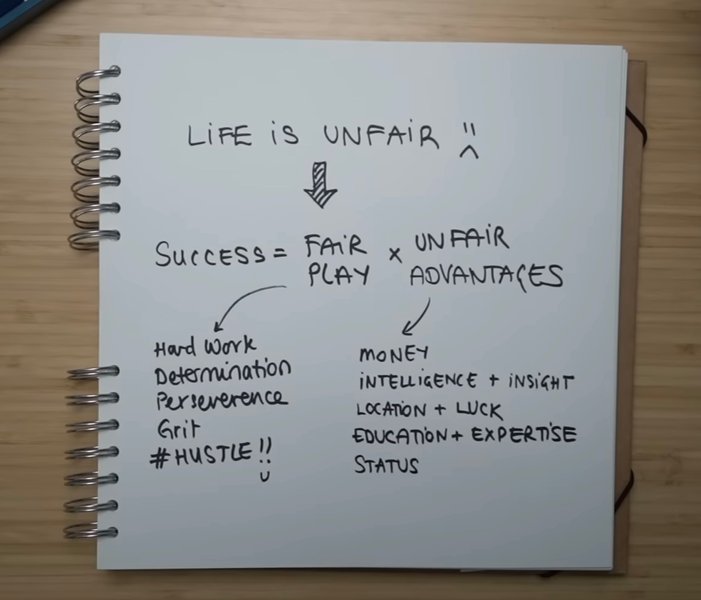 LiFE iS UNFAiR
SUCCESS = FAiR PLAY × UNFAiR ADVANTAGES
Hard Work
Determination
Perseverence
Grit
#HUSTLE!!
MONEY
iNTELLIGENCE + iNSiGHT
LOCATiON + LUCK
EDUCATiON + EXPERTiSE
STATUS